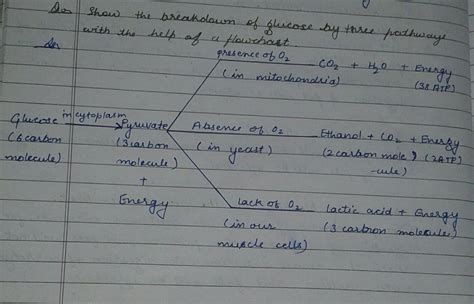 Q. Show the breakdown of glucose by three pathways
with the help of a flowchart.
presence of O2 CO2 + H2O + Energy
(in mitochondria) (38 ATP)
Glucose in cytoplasm Pyruvate Absence of O2 Ethanol + CO2 + Energy
(6 carbon (3 carbon (in yeast) (2 carbon mole (2ATP)
molecule) molecule) -cule)
+
Energy lack of O2 lactic acid + Energy
(in our (3 carbon molecule)
muscle cells)